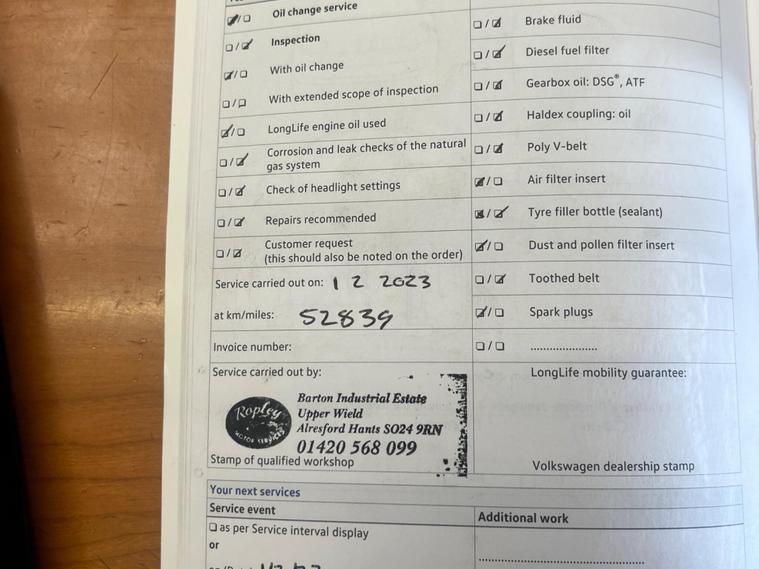 Oil change service
Inspection
With oil change
With extended scope of inspection
LongLife engine oil used
Corrosion and leak checks of the natural
gas system
Check of headlight settings
Repairs recommended
Customer request
(this should also be noted on the order)
Service carried out on: 1 2 2023
at km/miles: 52839
Invoice number:
Service carried out by:
Ropley
MOTOR SERVICES
Barton Industrial Estate
Upper Wield
Alresford Hants SO24 9RN
01420 568 099
Stamp of qualified workshop
Brake fluid
Diesel fuel filter
Gearbox oil: DSG®, ATF
Haldex coupling: oil
Poly V-belt
Air filter insert
Tyre filler bottle (sealant)
Dust and pollen filter insert
Toothed belt
Spark plugs
.....................
LongLife mobility guarantee:
Volkswagen dealership stamp
Your next services
Service event
as per Service interval display
or
Additional work